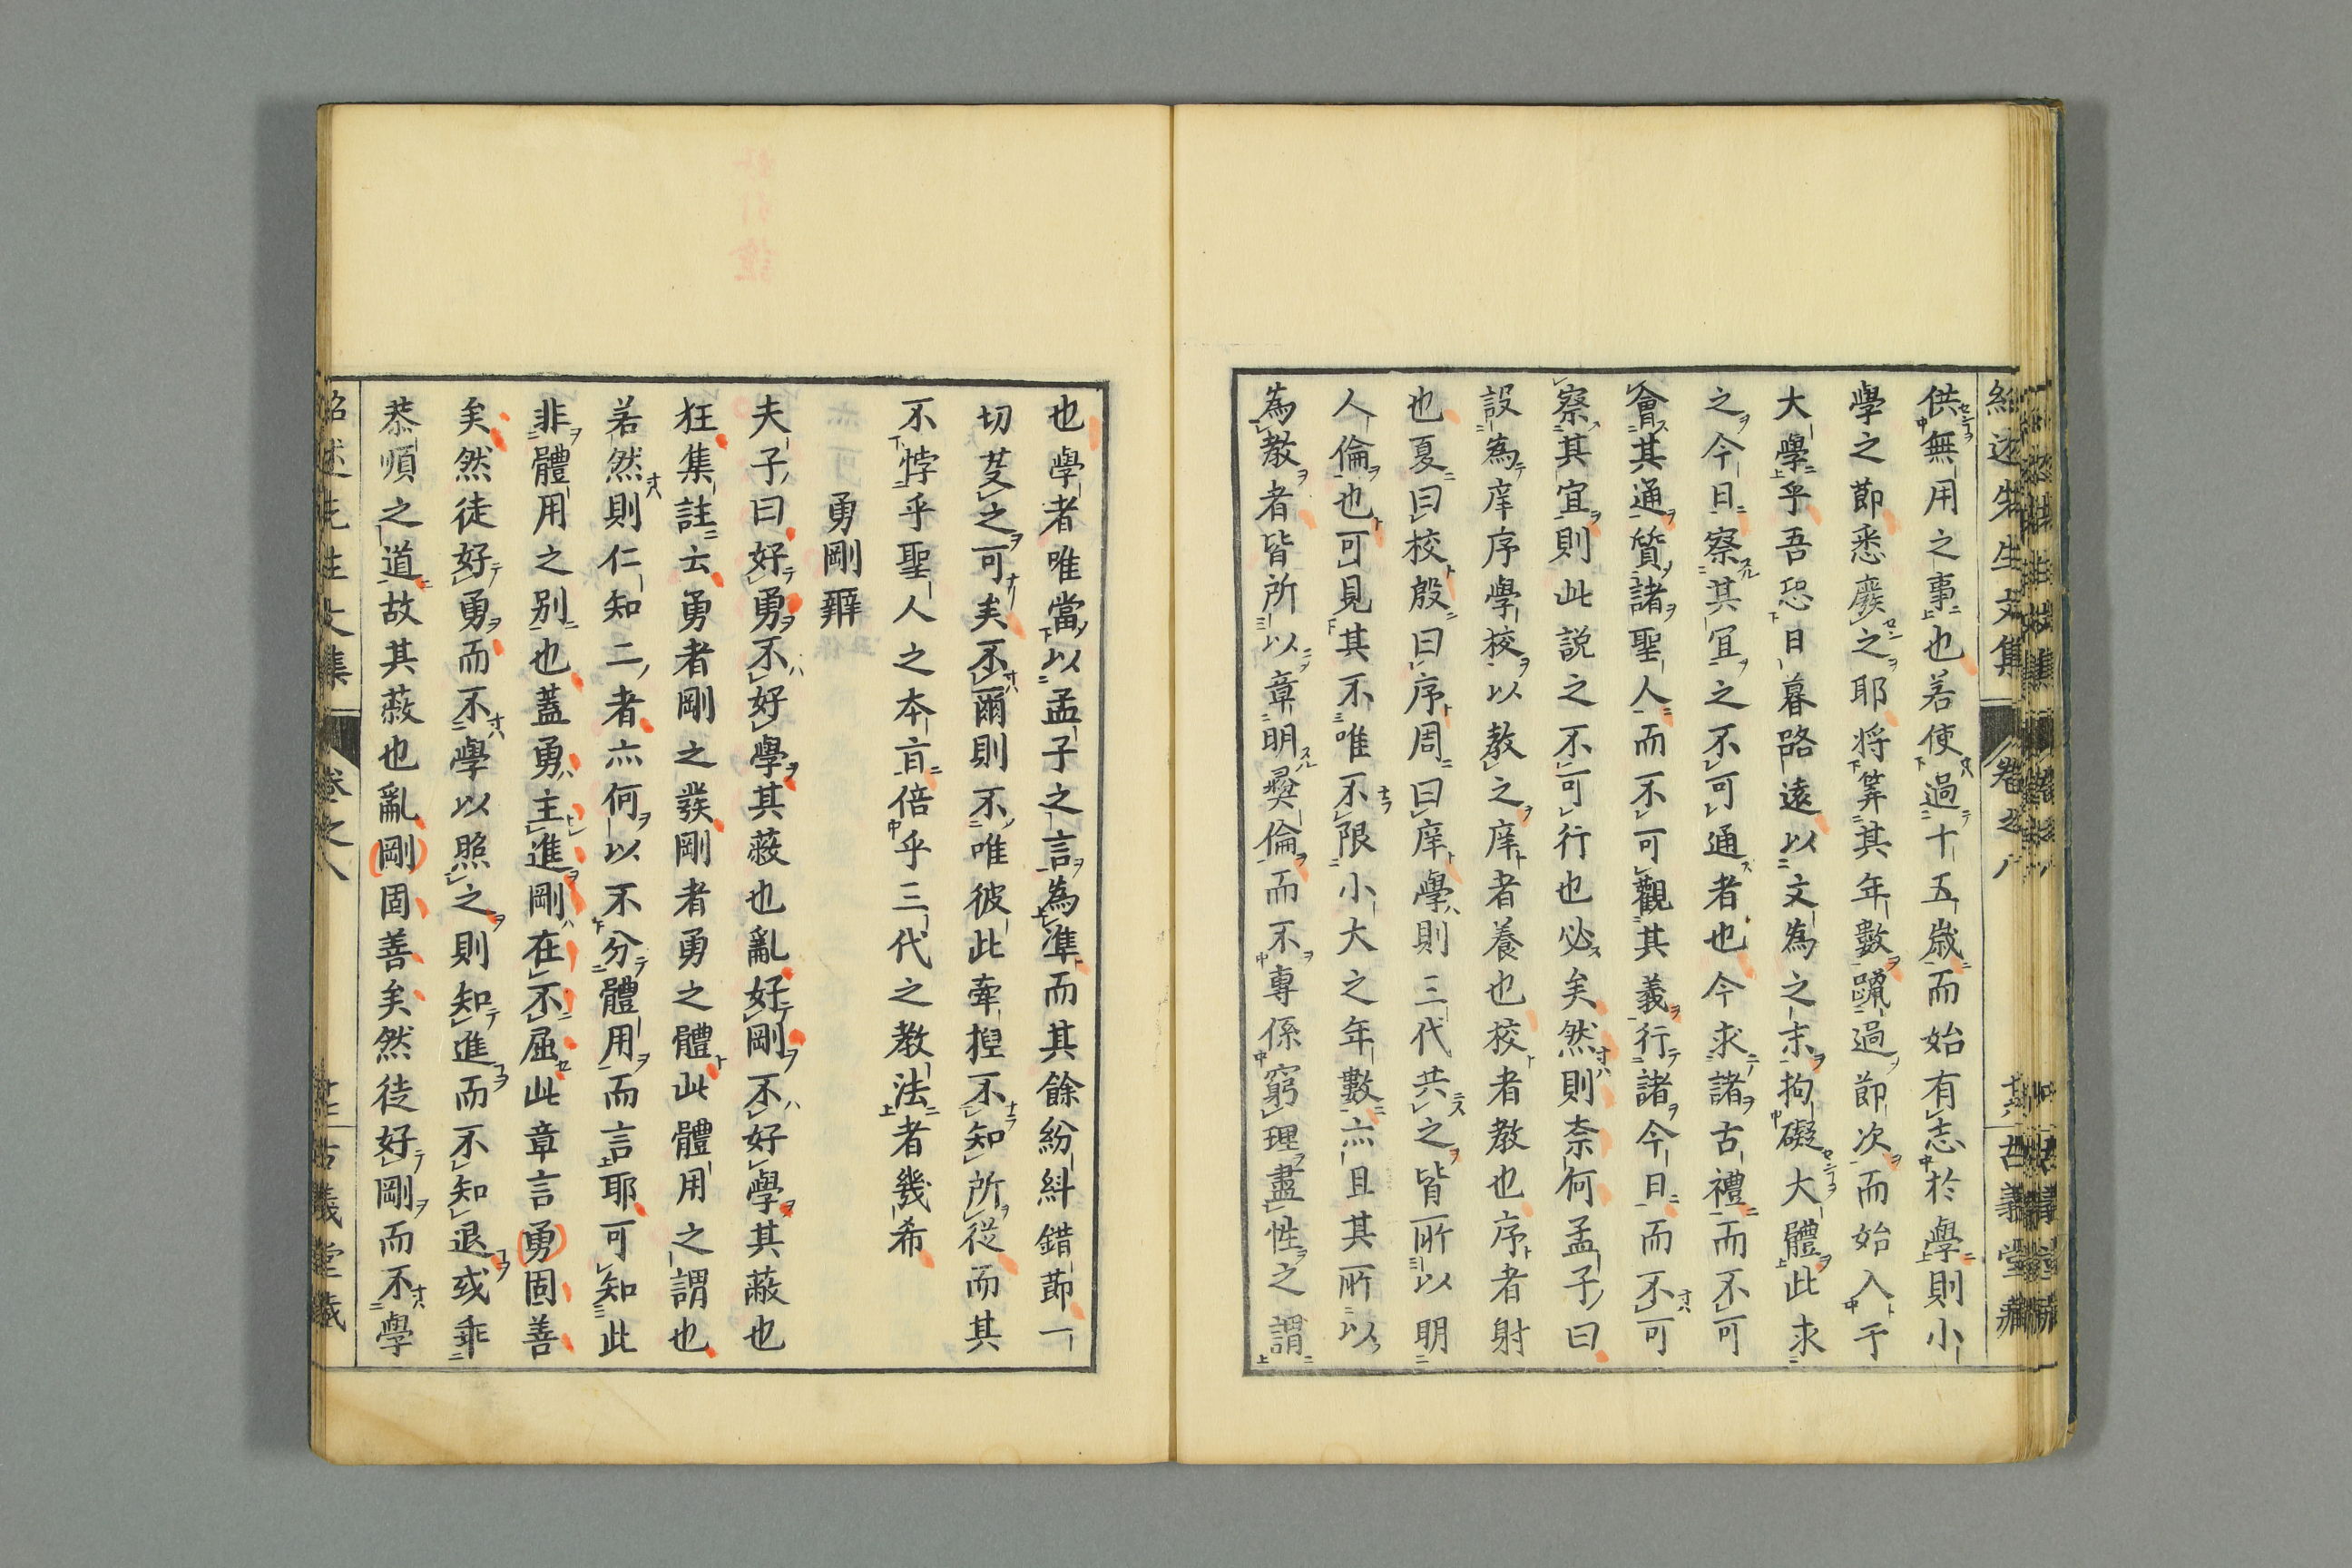 紹述先生文集 卷之八 古義堂藏
供無用之事也若使過十五歲而始有志於學則小
學之節悉廢之耶將筭其年數躐過節次而始入于
大學乎吾恐日暮路遠以文為之末拘礙大體此求
之今日察其宜之不可通者也今求諸古禮而不可
會其通質諸聖人而不可觀其義行諸今日而不可
察其宜則此説之不可行也必矣然則柰何孟子曰
設為庠序學校以教之庠者養也校者教也序者射
也夏曰校殷曰序周曰庠學則三代共之皆所以明
人倫也可見其不唯不限小大之年數亦且其所以
為教者皆所以章明彝倫而不專係窮理盡性之謂
也學者唯當以孟子之言為準而其餘紛糾錯節一
切芟之可矣不爾則不唯彼此牽揑不知所從而其
不悖乎聖人之本㫖倍乎三代之教法者幾希
勇剛辨
夫子曰好勇不好學其蔽也亂好剛不好學其蔽也
狂集註云勇者剛之發剛者勇之體此體用之謂也
若然則仁知二者亦何以不分體用而言耶可知此
非體用之別也蓋勇主進剛在不屈此章言勇固善
矣然徒好勇而不學以照之則知進而不知退或乖
恭順之道故其蔽也亂剛固善矣然徒好剛而不學
紹述先生文集 卷之八 古義堂藏